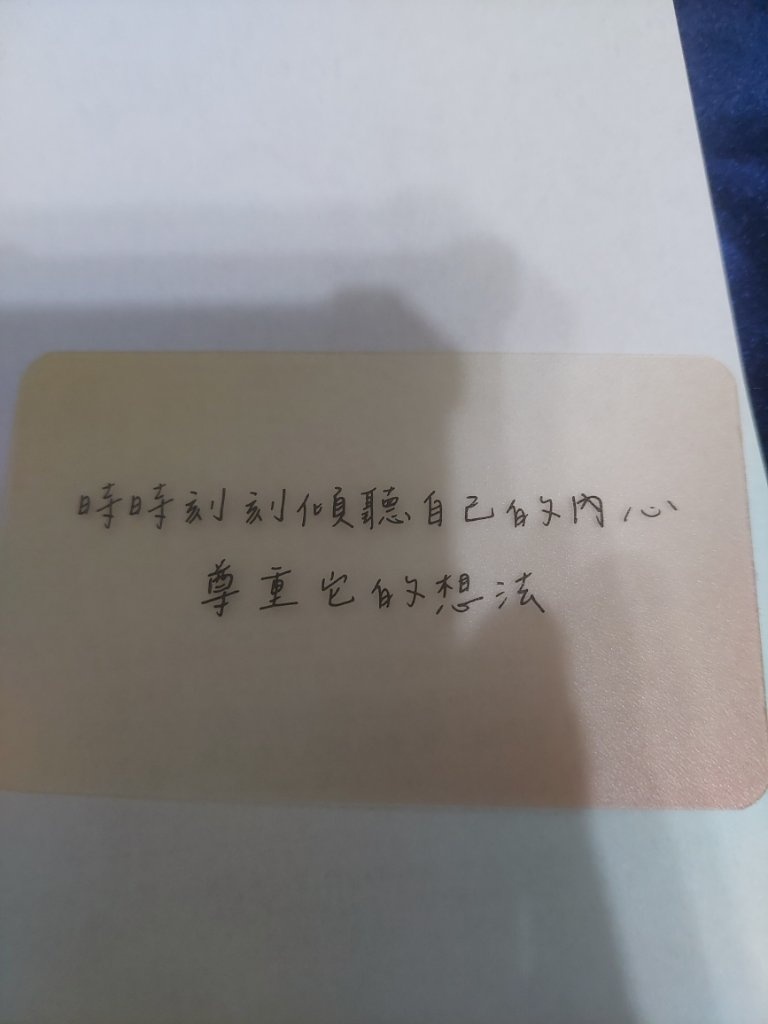 時時刻刻傾聽自己的內心
尊重它的想法